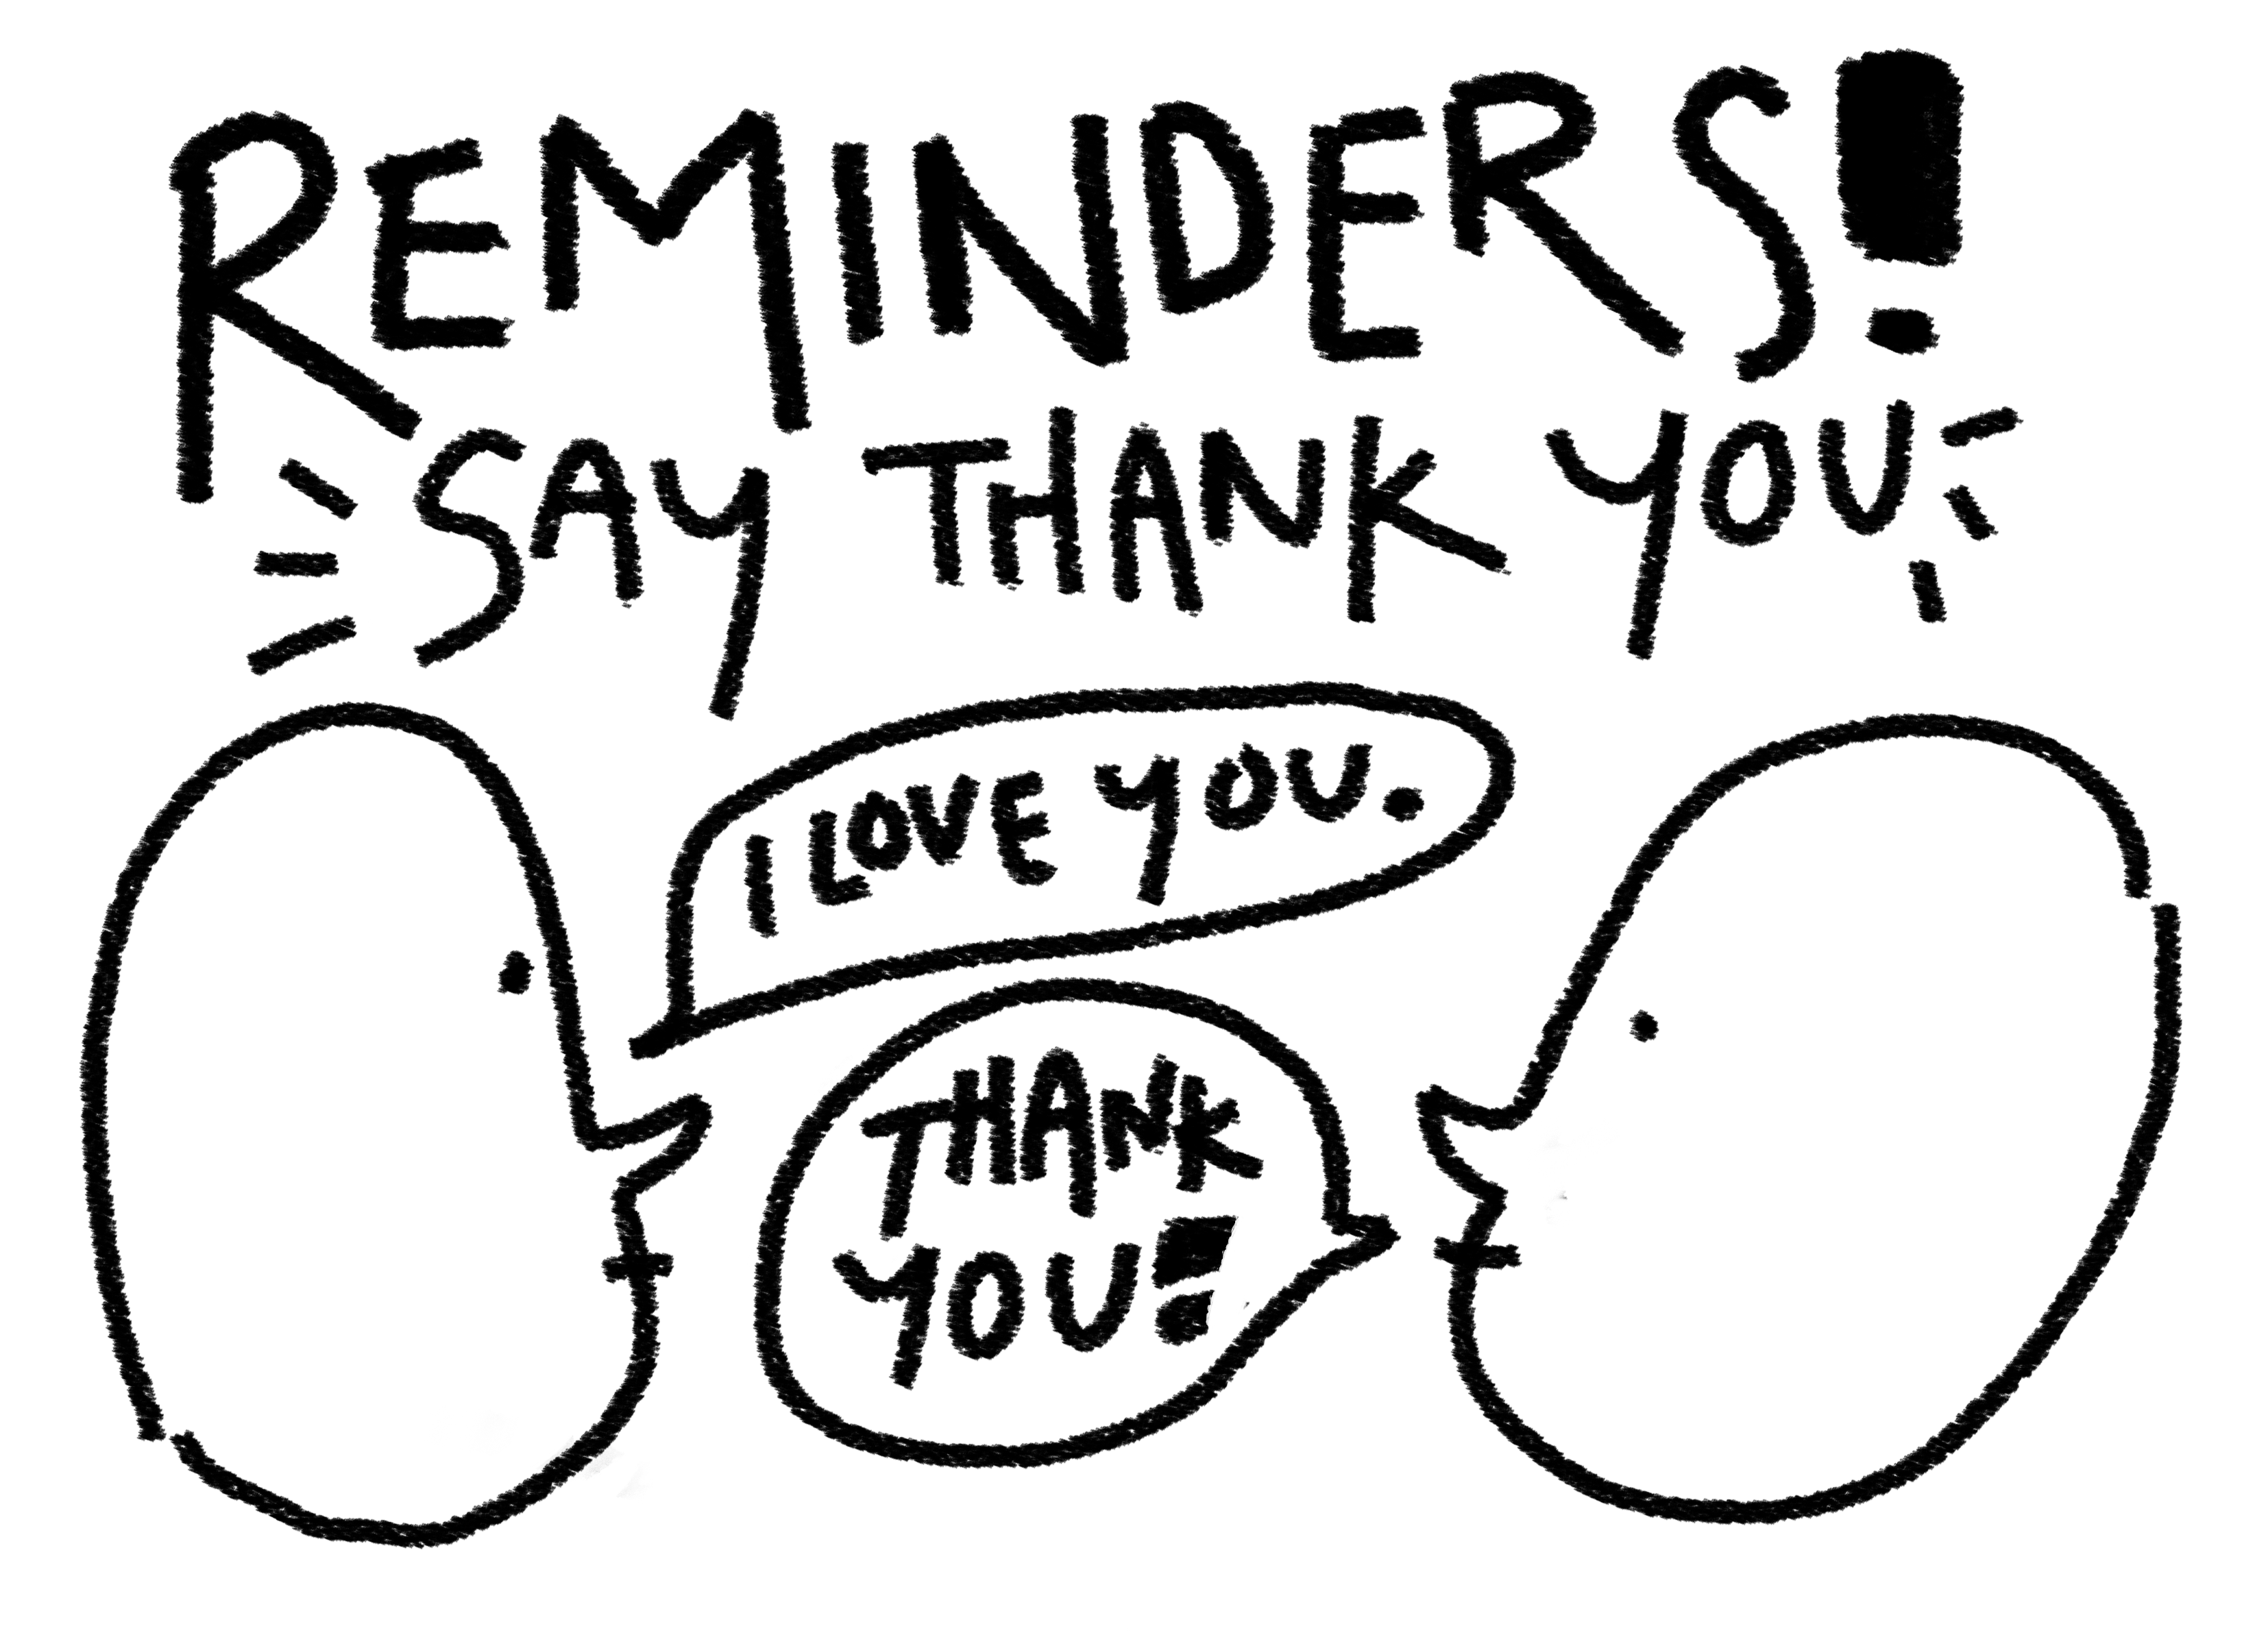 REMINDERS!
SAY THANK YOU
I LOVE YOU.
THANK
YOU!